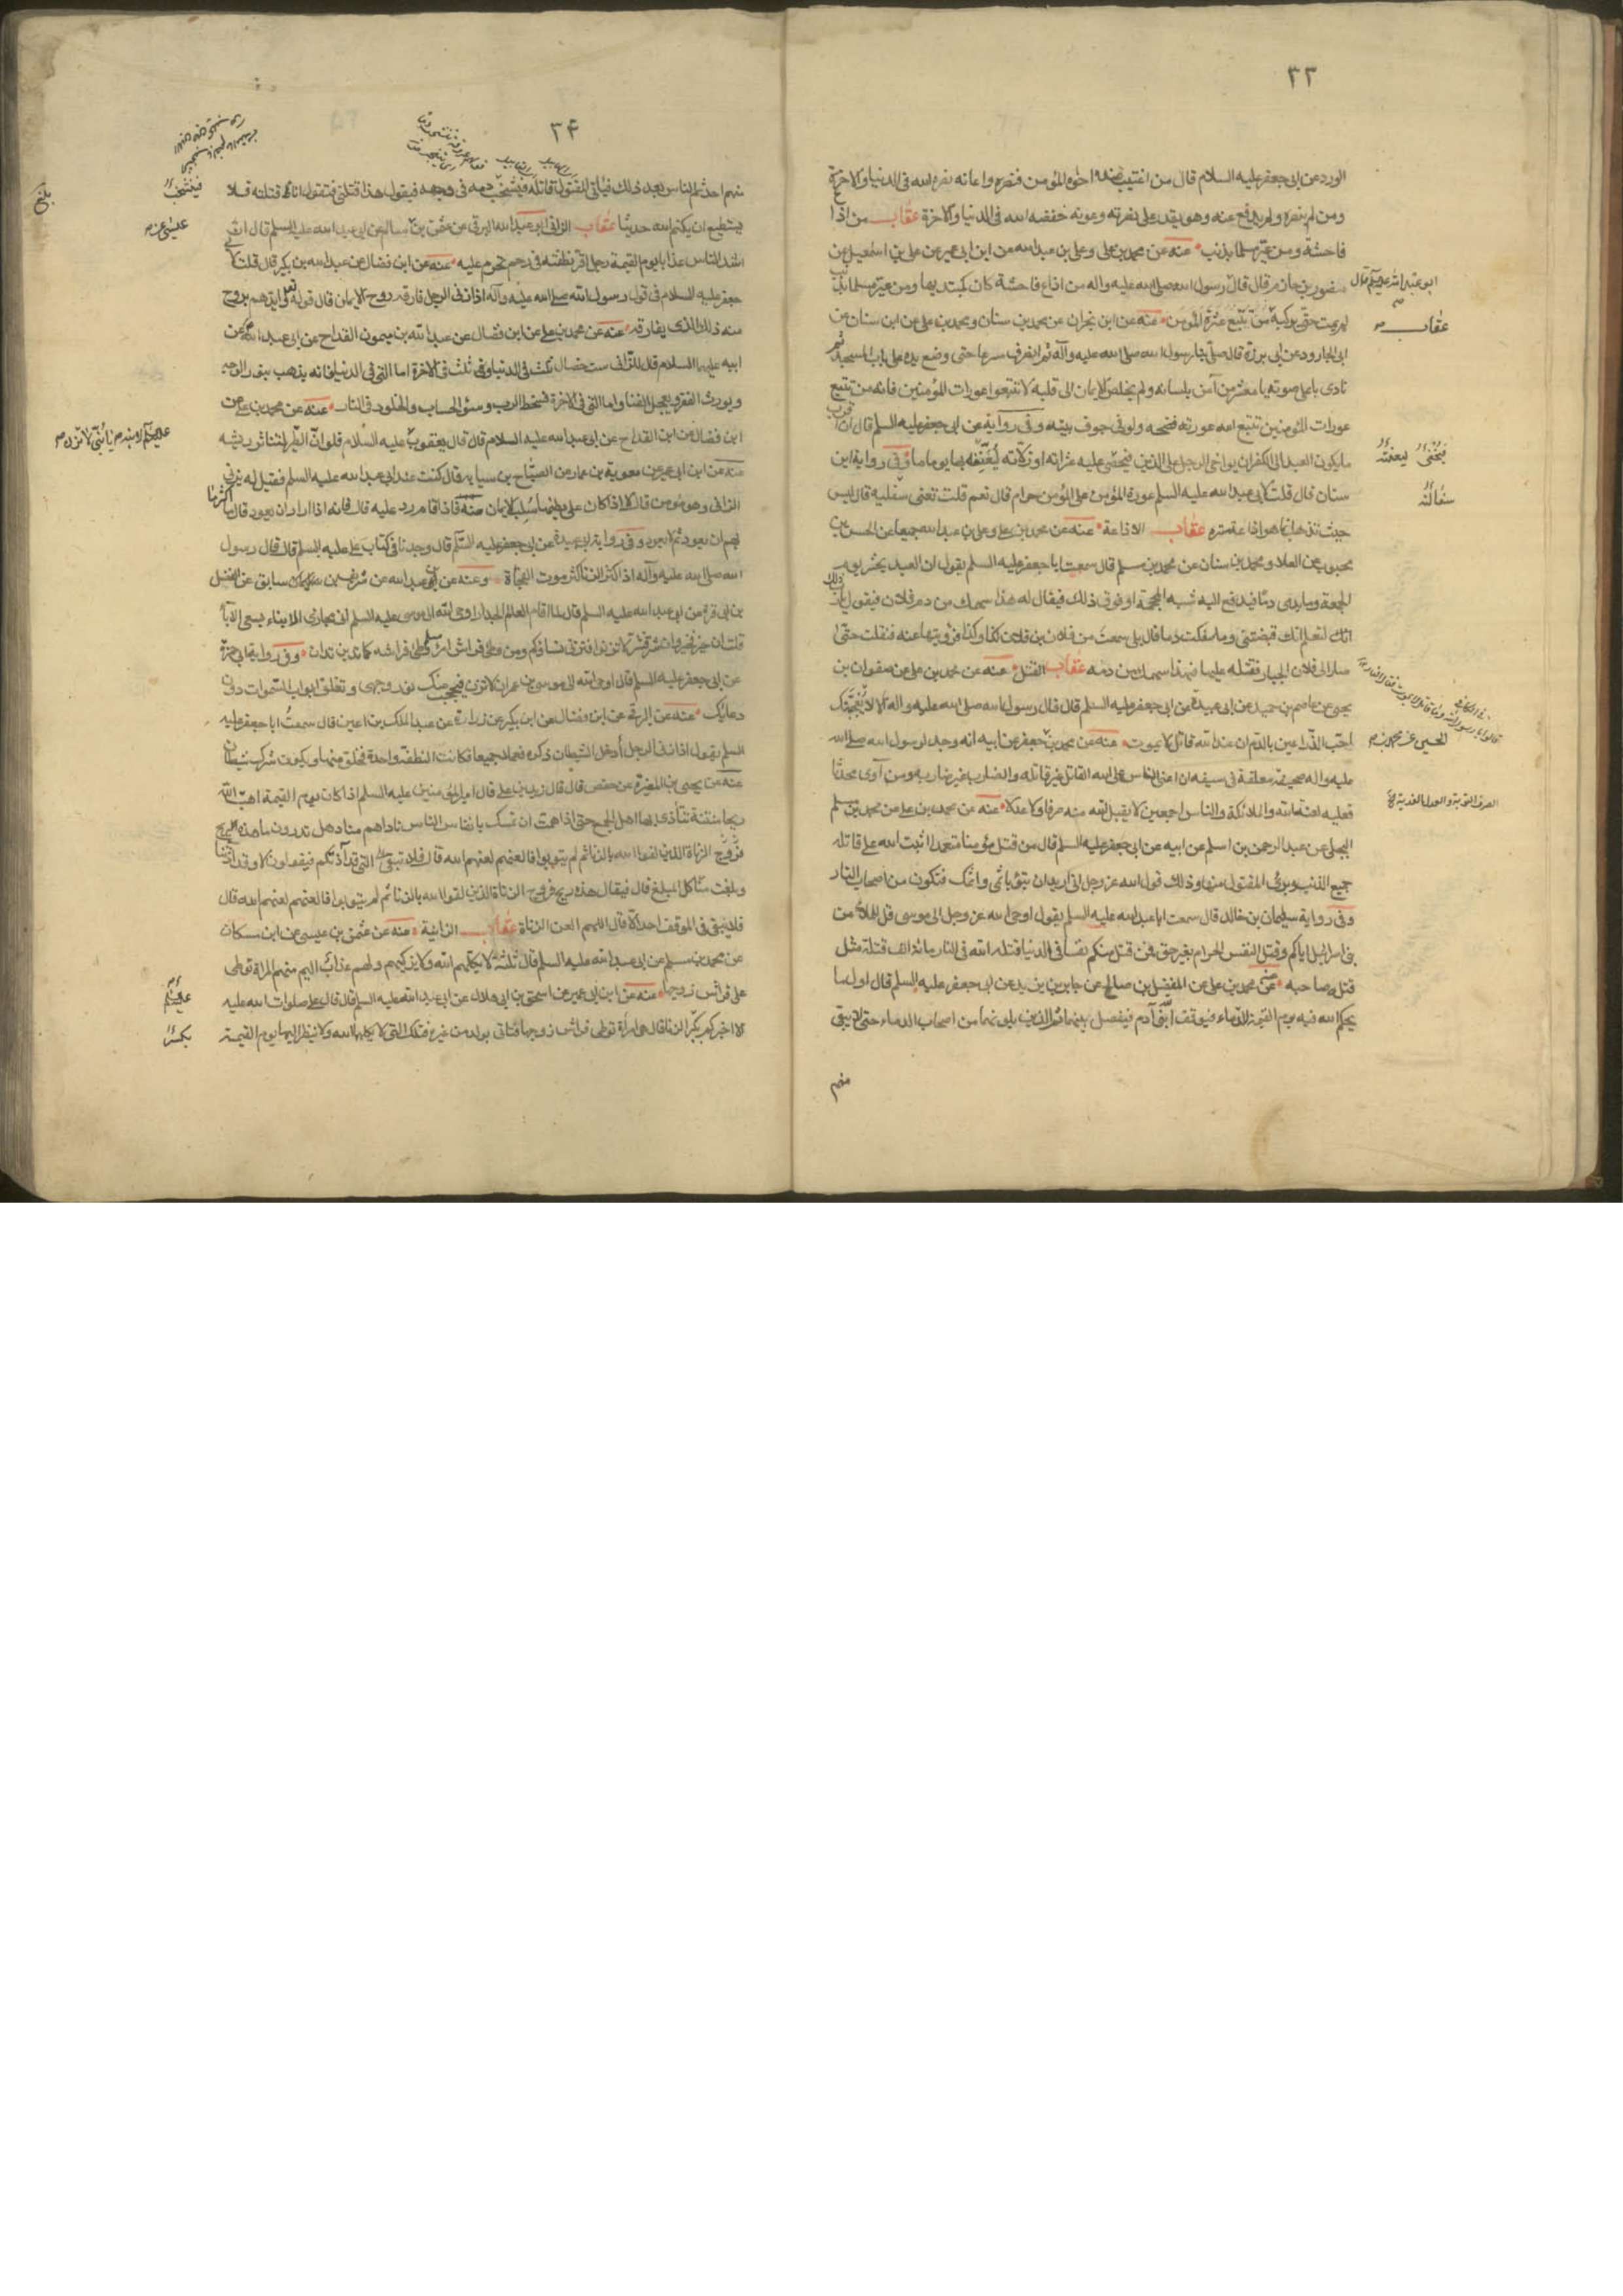 ٣٣
الورد عن ابى جعفر عليه السلام قال من اغتيب عنده اخوه المؤمن فنصره واعانه نصره الله فى الدنيا والاخرة
ومن لم ينصره ولم يدفع عنه وهو يقدر على نصرته وعونه خفضه الله فى الدنيا والاخرة عقاب من اذاع
فاحشة ومن عيّر مسلما بذنب عنه عن محمد بن على وعلى بن عبد الله من ابن ابى عمير عن على بن اسمعيل عن
منصور بن حازم قال قال رسول الله صلى الله عليه واله من اذاع فاحشة كان كمبتديها ومن عيّر مسلما بذنب
لم يمت حتى يركبه من تتبع عثرة المؤمن عنه عن ابن نجران عن محمد بن سنان ومحمد بن على عن ابن سنان عن
ابى الجارود عن ابى برزة قال صلّى بنا رسول الله صلى الله عليه وآله ثم انصرف سرعا حتى وضع يده على باب المسجد ثم
نادى باعلى صوته يا معشر من آمن بلسانه ولم يخلص الايمان الى قلبه لا تتبعوا عورات المؤمنين فانه من تتبع
عورات المؤمنين تتبع الله عورته فضحه ولو فى جوف بيته وفى رواية عن ابى جعفر عليه السلم قال ان اقرب
ما يكون العبد الى الكفر ان يواخى الرجل على الدين فيحصى عليه عثراته او زلاته ليعنّفه بها يوما ما وفى رواية ابن
سنان قال قلت لابى عبد الله عليه السلم عورة المؤمن على المؤمن حرام قال نعم قلت تعنى سفليه قال ليس
حيث تذهب انما هو اذاعة سره عقاب الاذاعة عنه عن محمد بن على وعلى بن عبد الله جميعا عن الحسن بن
محبوب عن العلاء ومحمد بن سنان عن محمد بن مسلم قال سمعت ابا جعفر عليه السلم يقول ان العبد يحشر يوم
القيمة وما يدمى دمّا فيدفع اليه شبه المحجمة او فوق ذلك فيقال له هذا سهمك من دم فلان فيقول يا رب
انك لتعلم انك قبضتنى وما سفكت دما قال بلى سمعت من فلان بن فلان كذا وكذا فرويتها عنه فنقلت حتى
صار الى فلان الجبار فقتله عليها فهذا سهمك من دمه عقاب القتل عنه عن محمد بن على عن صفوان بن
يحيى عن عاصم بن حميد عن ابى عبيدة عن ابى جعفر عليه السلم قال قال رسول الله صلى الله عليه واله لا يعجبك
رحب الذراعين بالدم ان عند الله قاتلا لا يموت عنه عن محمد بن جعفر عن ابيه انه وجد لرسول الله صلى الله
عليه واله صحيفة معلقة فى سيفه ان اعتى الناس على الله القاتل غير قاتله والضارب غير ضاربه ومن آوى محدثا
فعليه لعنة الله والملائكة والناس اجمعين لا يقبل الله منه صرفا ولا عدلا عنه عن محمد بن على عن محمد بن مسلم
البجلى عن عبد الرحمن بن اسلم عن ابيه عن ابى جعفر عليه السلم قال من قتل مؤمنا متعمدا اثبت الله على قاتله
جميع الذنوب وبرئ المقتول منها وذلك قول الله عز وجل انى اريد ان تبوء باثمى واثمك فتكون من اصحاب النار
وفى رواية سليمان بن خالد قال سمعت ابا عبد الله عليه السلم يقول اوحى الله عز وجل الى موسى قل للملأ من
بنى اسرائيل اياكم وقتل النفس الحرام بغير حق فمن قتل منكم نفسا فى الدنيا قتله الله فى النار مائة الف قتلة مثل
قتل صاحبه عنه عن محمد بن على عن المفضل بن صالح عن جابر بن يزيد عن ابى جعفر عليه السلم قال اول ما
يحكم الله فيه يوم القيمة الدماء فيوقف ابنى آدم فيفصل بينهما ثم الذين يلونهما من اصحاب الدماء حتى لا يبقى
منهم
ابو عبد الله عليه السلم قال
عقاب
فيحصى
ليعنفه
سفاله
٣۴
منهم احد ثم الناس بعد ذلك فياتى المقتول قاتله فيشخب دمه فى وجهه فيقول هذا قتلنى فيقول انت قتلته فلا
يستطيع ان يكتم الله حديثا عقاب الزانى ابو عبد الله البرقى عن عثمن بن سالم عن ابى عبد الله عليه السلم قال ان
اشد الناس عذابا يوم القيمة رجل اقر نطفته فى رحم تحرم عليه عنه عن ابن فضال عن عبد الله بن بكير قال قلت لابى
جعفر عليه السلام فى قول رسول الله صلى الله عليه وآله اذا زنى الرجل فارقه روح الايمان قال قوله تعالى وايدهم بروح
منه ذلك الذى يفارقه عنه عن محمد بن على عن ابن فضال عن عبد الله بن ميمون القداح عن ابى عبد الله عن
ابيه عليهما السلام قال للزانى ست خصال ثلث فى الدنيا وثلث فى الاخرة اما التى فى الدنيا فانه يذهب بنور الوجه
ويورث الفقر ويعجل الفنا واما التى فى الاخرة فسخط الرب وسوء الحساب والخلود فى النار عنه عن محمد بن على عن
ابن فضال عن ابن القداح عن ابى عبد الله عليه السلام قال قال يعقوب عليه السلام فلو ان الطير لتناثر ريشه
عنه عن ابن ابى عمير عن معوية بن عمار عن الصباح بن سيابه قال كنت عند ابى عبد الله عليه السلم فقيل له يزنى
الزانى وهو مؤمن قال لا اذا كان على بطنها سلب الايمان منه فاذا قام رد عليه قال فانه اذا اراد ان يعود قال ما اكثر ما
يهم ان يعود ثم لا يعود وفى رواية ابى عبيدة عن ابى جعفر عليه السلم قال وجدنا فى كتاب على عليه السلم قال قال رسول
الله صلى الله عليه وآله اذا كثر الزنا كثر موت الفجأة وعنه عن ابى عبد الله عن شريف بن سابق عن الفضل
بن ابى قرة عن ابى عبد الله عليه السلم قال لما اقام العالم الجدار اوحى الله الى موسى عليه السلم انى مجازى الابناء بسعى الآباء
ان خير فخير وان شر فشر لا تزنوا فتزنى نساؤكم ومن وطئ فراش امرء مسلم وطئ فراشه كما تدين تدان وفى رواية ابى حمزة
عن ابى جعفر عليه السلم قال اوحى الله الى موسى بن عمران لا تزن فيحجب منك نور وجهى وتغلق ابواب السموات دون
دعائك عنه عن البرقى عن ابن فضال عن ابن بكير عن زرارة عن عبد الملك بن اعين قال سمعت ابا جعفر عليه
السلم يقول اذا زنى الرجل أدخل الشيطان ذكره فعملا جميعا فكانت النطفة واحدة فخلق منها ويكون شرك شيطان
عنه عن يحيى بن المغيرة عن حفص قال قال زيد بن على قال امير المؤمنين عليه السلم اذا كان يوم القيمة اهب الله
ريحا منتنة تتأذى بها اهل الجمع حتى اذا همت ان تمسك بانفاس الناس ناداهم مناد هل تدرون ما هذه الريح
وبلغت منا كل المبلغ قال فيقال هذه ريح فروج الزناة الذين لقوا الله بالزنا ثم لم يتوبوا فالعنوهم لعنهم الله قال
فلا يبقى فى الموقف احد الا قال اللهم العن الزناة عقاب الزانية عنه عن عثمن بن عيسى عن ابن مسكان
عن محمد بن مسلم عن ابى عبد الله عليه السلم قال ثلثة لا يكلمهم الله ولا يزكيهم ولهم عذاب اليم منهم المراة توطى
على فراش زوجها عنه عن ابن ابى عمير عن اسحق بن ابى هلال عن ابى عبد الله عليه السلم قال قال على صلوات الله عليه
الا اخبركم بكبر الزنا قال هى امرأة توطى فراش زوجها فتاتى بولد من غيره فتلك التى لا يكلمها الله ولا ينظر اليها يوم القيمة
فيشخب
بلغ